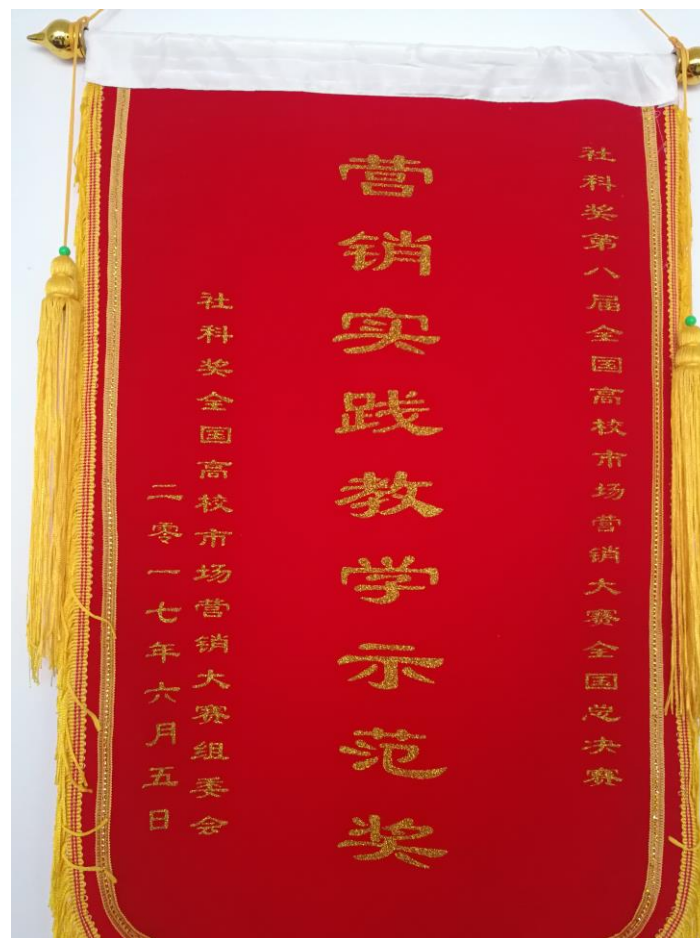 社科奖第八届全国高校市场营销大赛全国总决赛
营销实践教学示范奖
社科奖全国高校市场营销大赛组委会
二零一七年六月五日